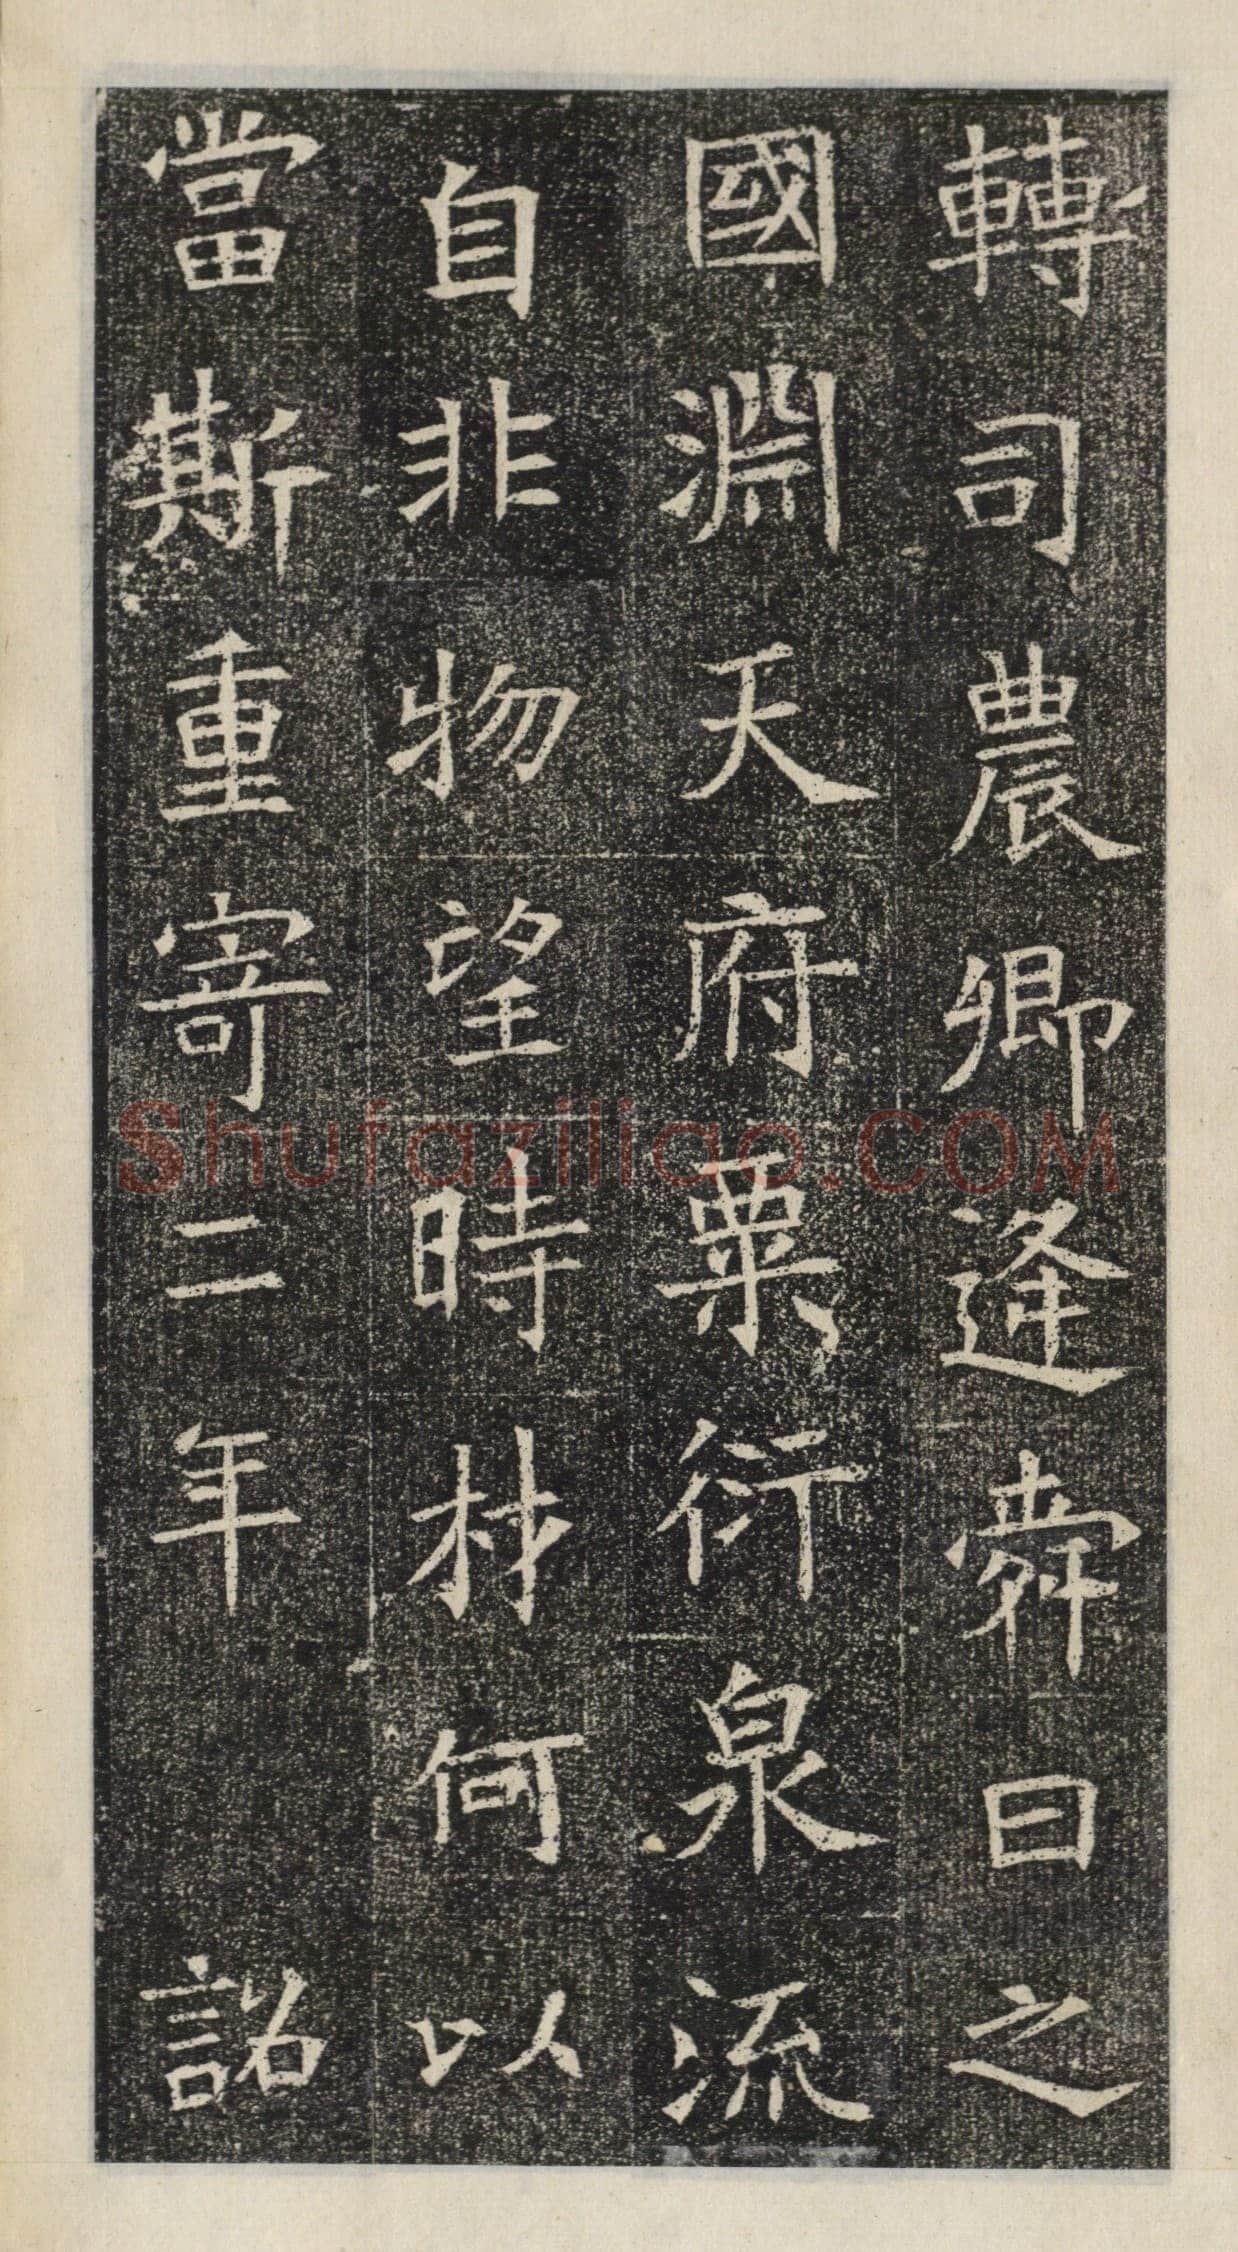 轉司農卿逢舜日之
國淵天府粟衍泉流
自非物望時材何以
當斯重寄二年 詔
Shufaziliao.COM